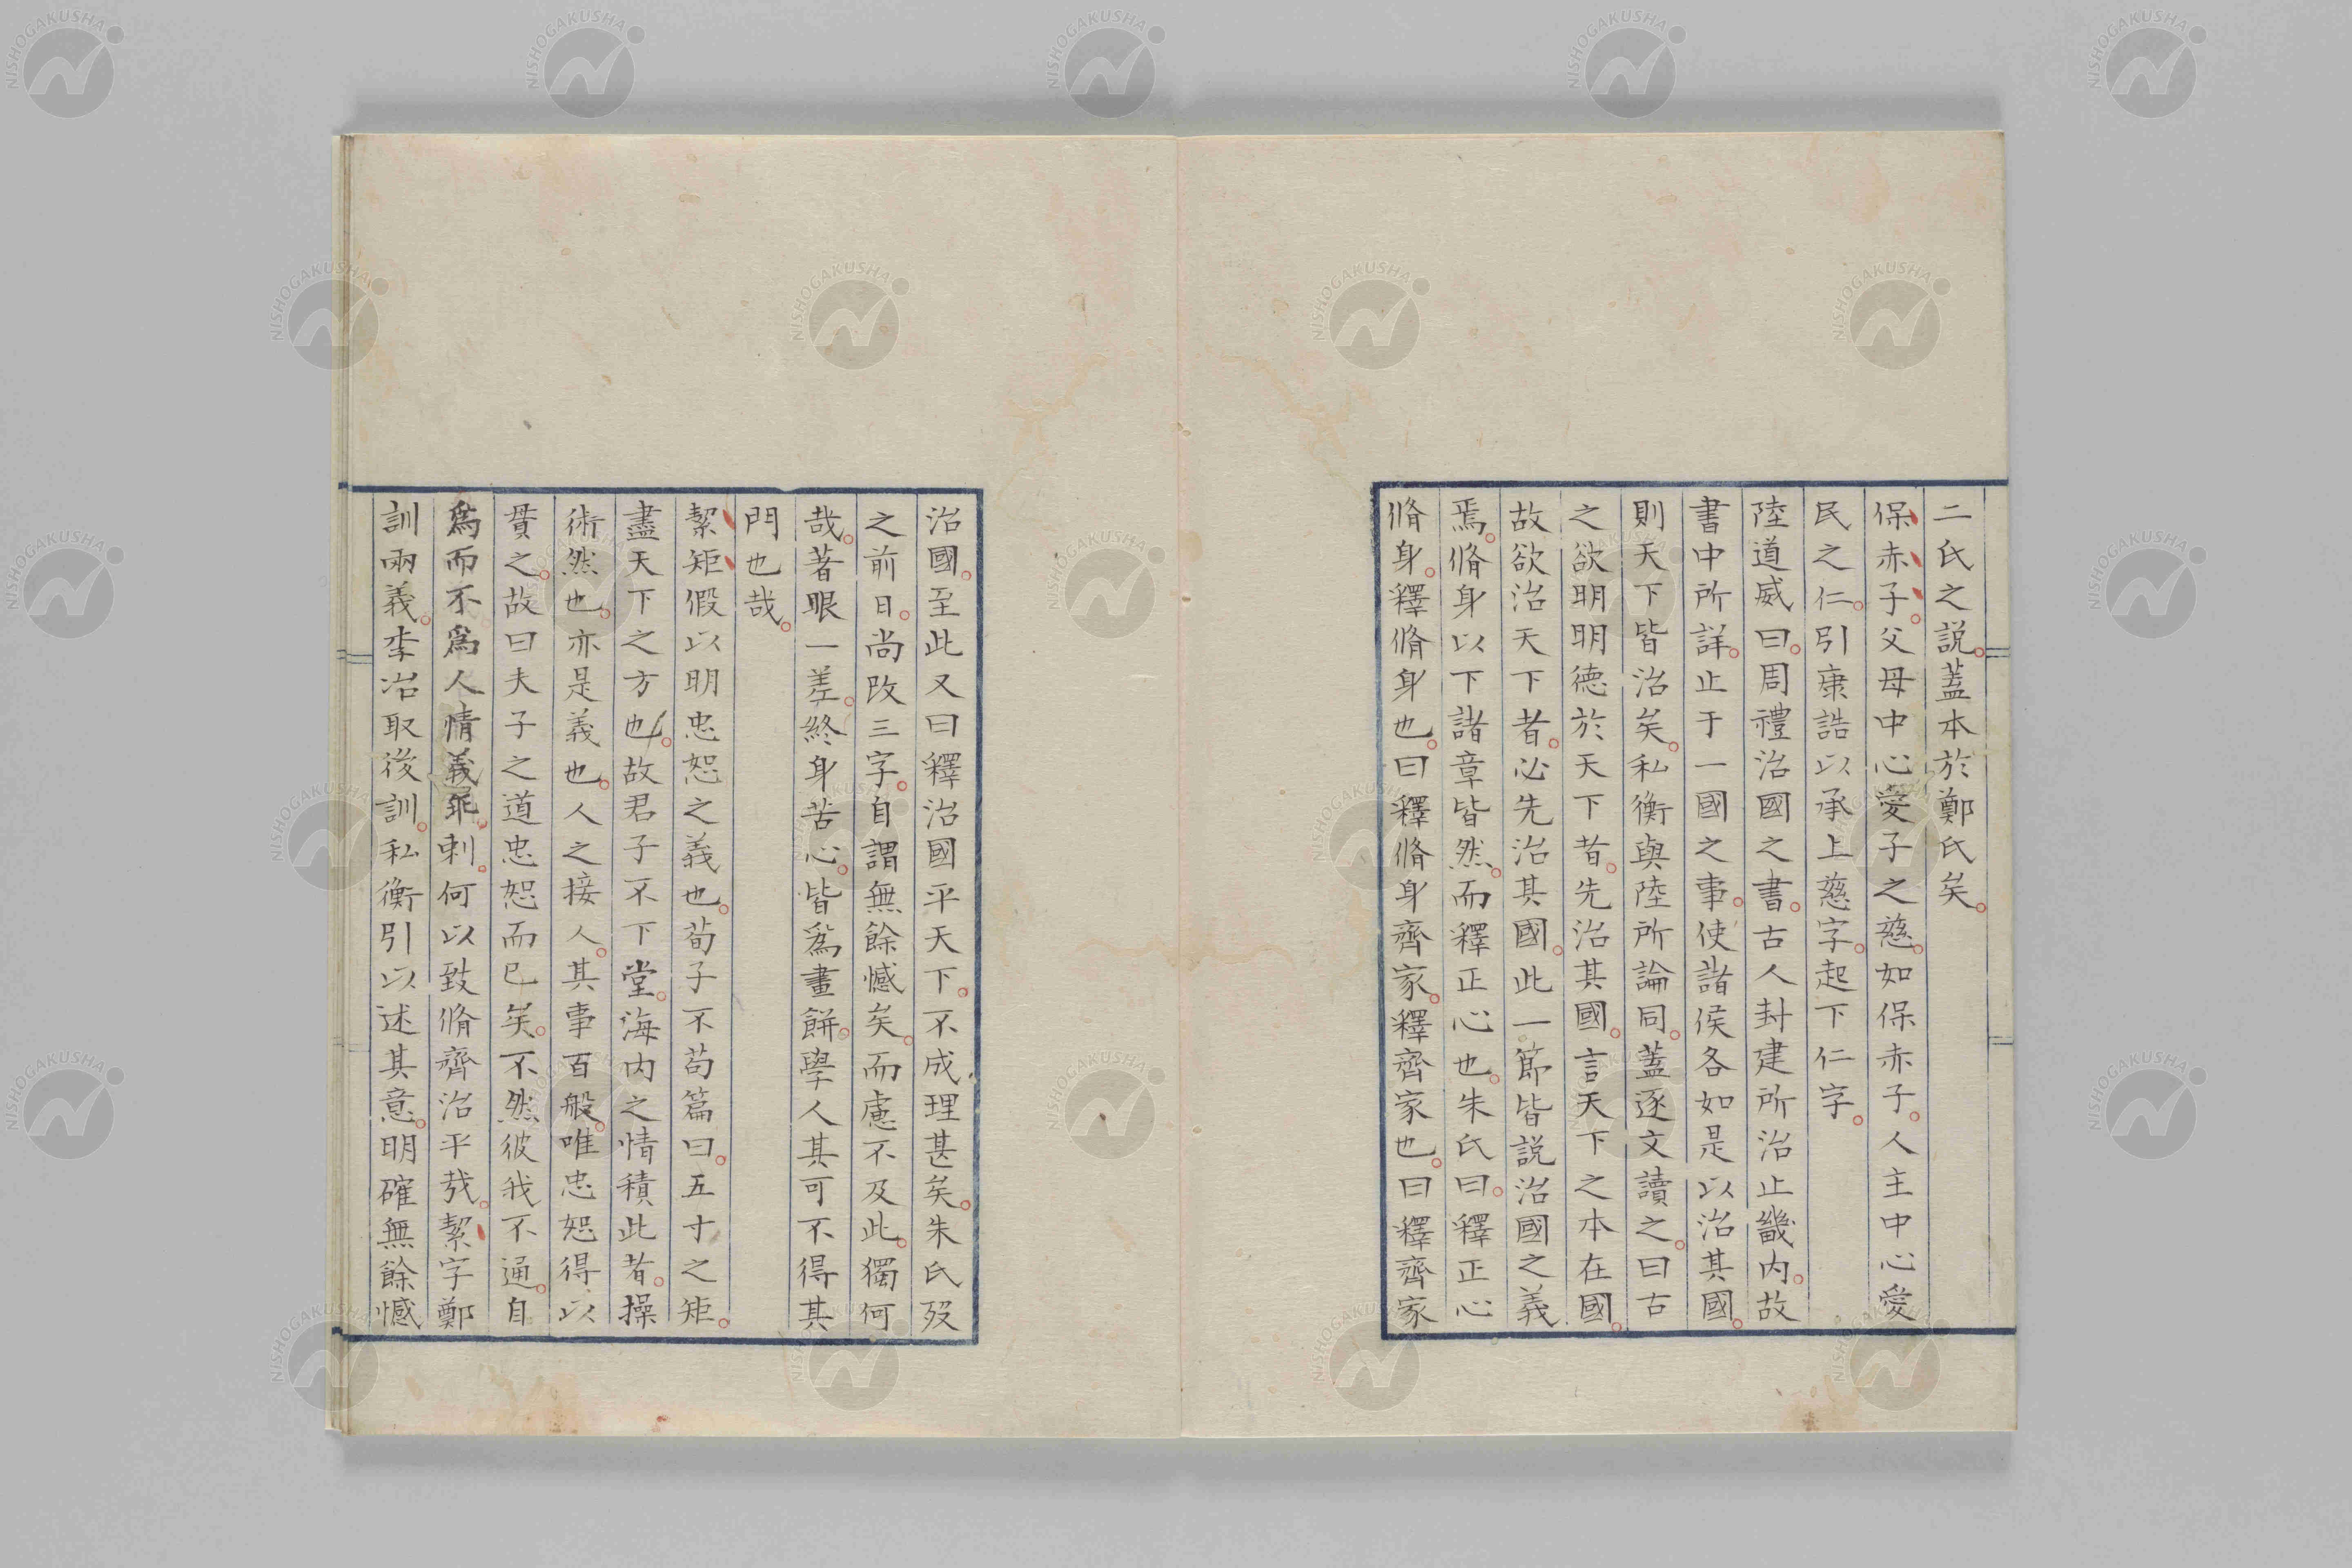 二氏之説。蓋本於鄭氏矣。
保赤子。父母中心愛子之慈。如保赤子。人主中心愛
民之仁。引康誥以承上慈字。起下仁字。
陸道威曰。周禮治國之書。古人封建所治止畿内。故
書中所詳。止于一國之事。使諸侯各如是以治其國。
則天下皆治矣。私衡與陸所論同。蓋逐文讀之。曰古
之欲明明德於天下者。先治其國。言天下之本在國。
故欲治天下者。必先治其國。此一節皆説治國之義
焉。脩身以下諸章皆然。而釋正心也。朱氏曰。釋正心
脩身。釋脩身也。曰釋脩身齊家。釋齊家也。曰釋齊家
治國。至此又曰釋治國平天下。不成理甚矣。朱氏歿
之前日。尚改三字。自謂無餘憾矣。而慮不及此。獨何
哉。著眼一差。終身苦心。皆爲畫餅。學人其可不得其
門也哉。
絜矩假以明忠恕之義也。荀子不苟篇曰。五寸之矩。
盡天下之方也。故君子不下堂。海内之情積此者。操
術然也。亦是義也。人之接人。其事百般。唯忠恕得以
貫之。故曰夫子之道忠恕而已矣。不然彼我不通。自
爲而不爲人情義乖剌。何以致脩齊治平哉。絜字鄭
訓兩義。李冶取後訓。私衡引以述其意。明確無餘憾
NISHOGAKUSHA